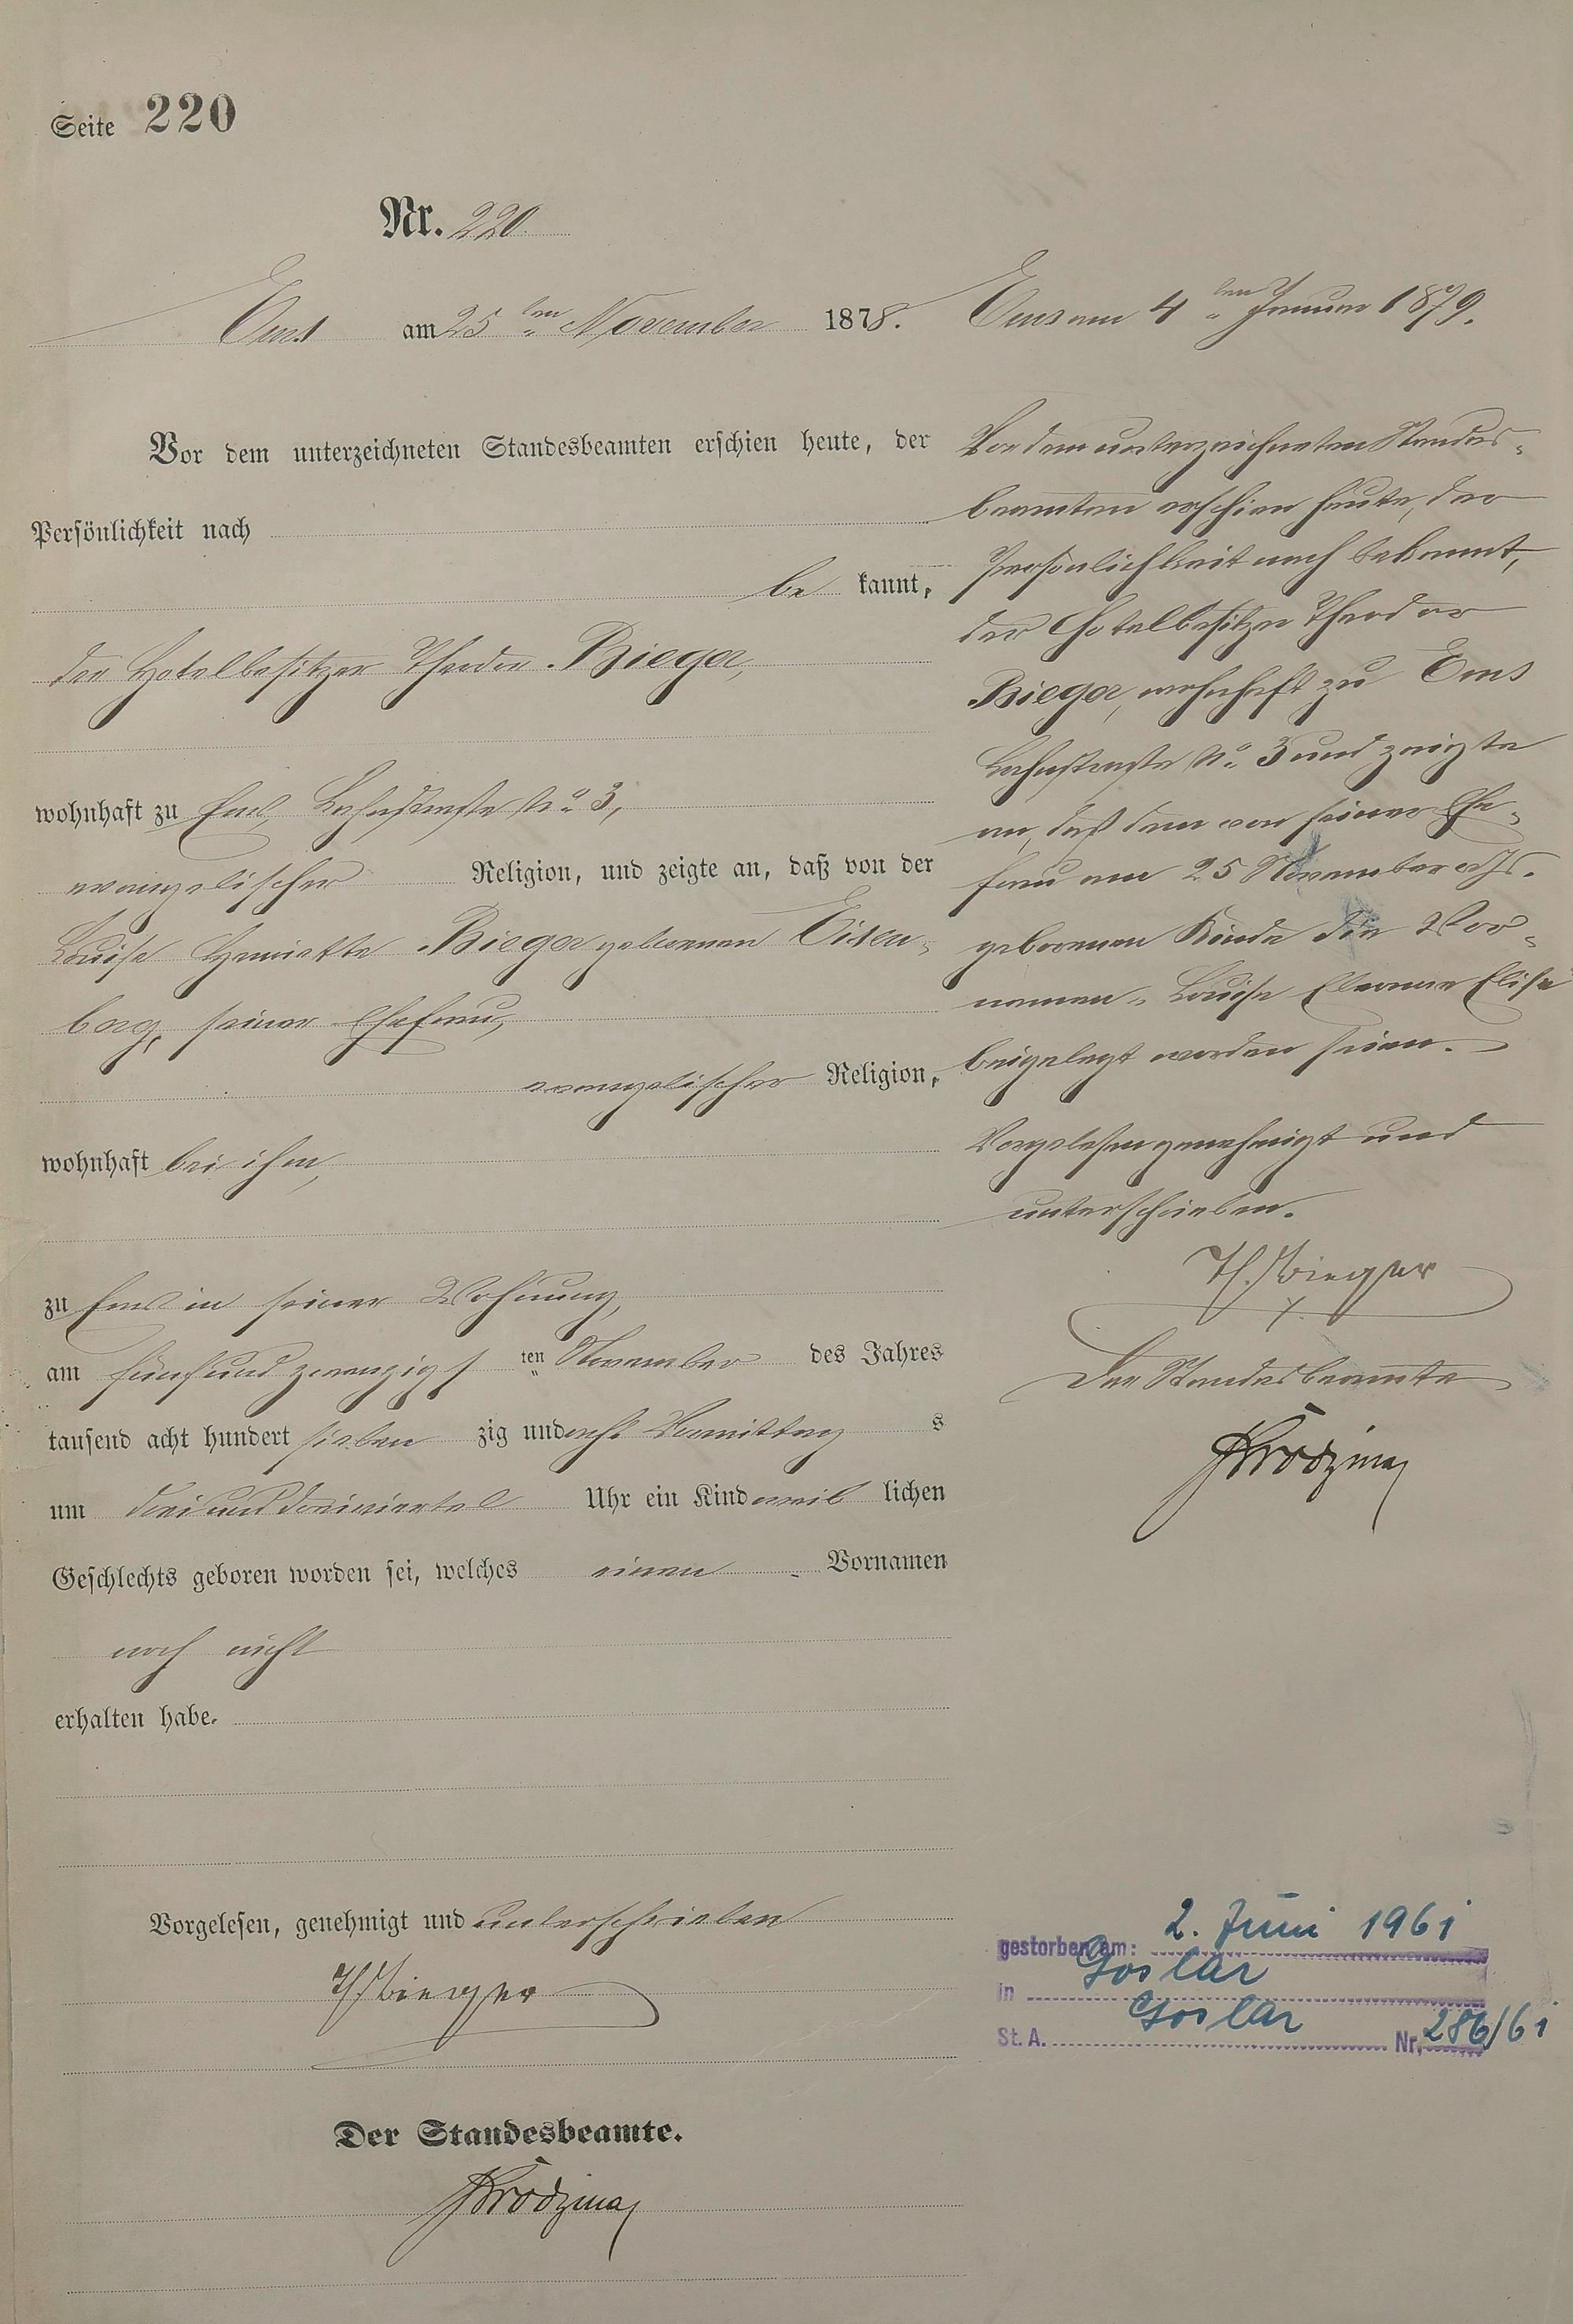 Seite 220
Nr. 220.
Ems am 25ten November 1878.
Vor dem unterzeichneten Standesbeamten erschien heute, der
Persönlichkeit nach
bekannt,
der Hotelbesitzer Theodor Bieger,
wohnhaft zu Ems, Lahnstraße No. 3,
evangelischer Religion, und zeigte an, daß von der
Louise Henriette Bieger geborenen Eisen-
berg, seiner Ehefrau,
evangelischer Religion,
wohnhaft bei ihm,
zu Ems in seiner Wohnung,
am fünfundzwanzigsten November des Jahres
tausend acht hundert siebenzig und acht Vormittags
um drei und dreiviertel Uhr ein Kind weiblichen
Geschlechts geboren worden sei, welches einen Vornamen
noch nicht
erhalten habe.
Vorgelesen, genehmigt und unterschrieben
Th. Bieger
Der Standesbeamte.
Ems am 4ten Januar 1879.
Vor dem unterzeichneten Standes-
beamten erschien heute, der
Persönlichkeit nach bekannt,
der Hotelbesitzer Theodor
Bieger, wohnhaft zu Ems
Lahnstraße No. 3 und zeigte
an, daß dem von seiner Ehe-
frau am 25 November v. Js.
geborenen Kinde die Vor-
namen Louise Eleonore Elise
beigelegt worden seien.
Vorgelesen genehmigt und
unterschrieben.
Th. Bieger
Der Standesbeamte
gestorben am: 2. Juni 1961
in Goslar
St. A. Goslar Nr. 286/61